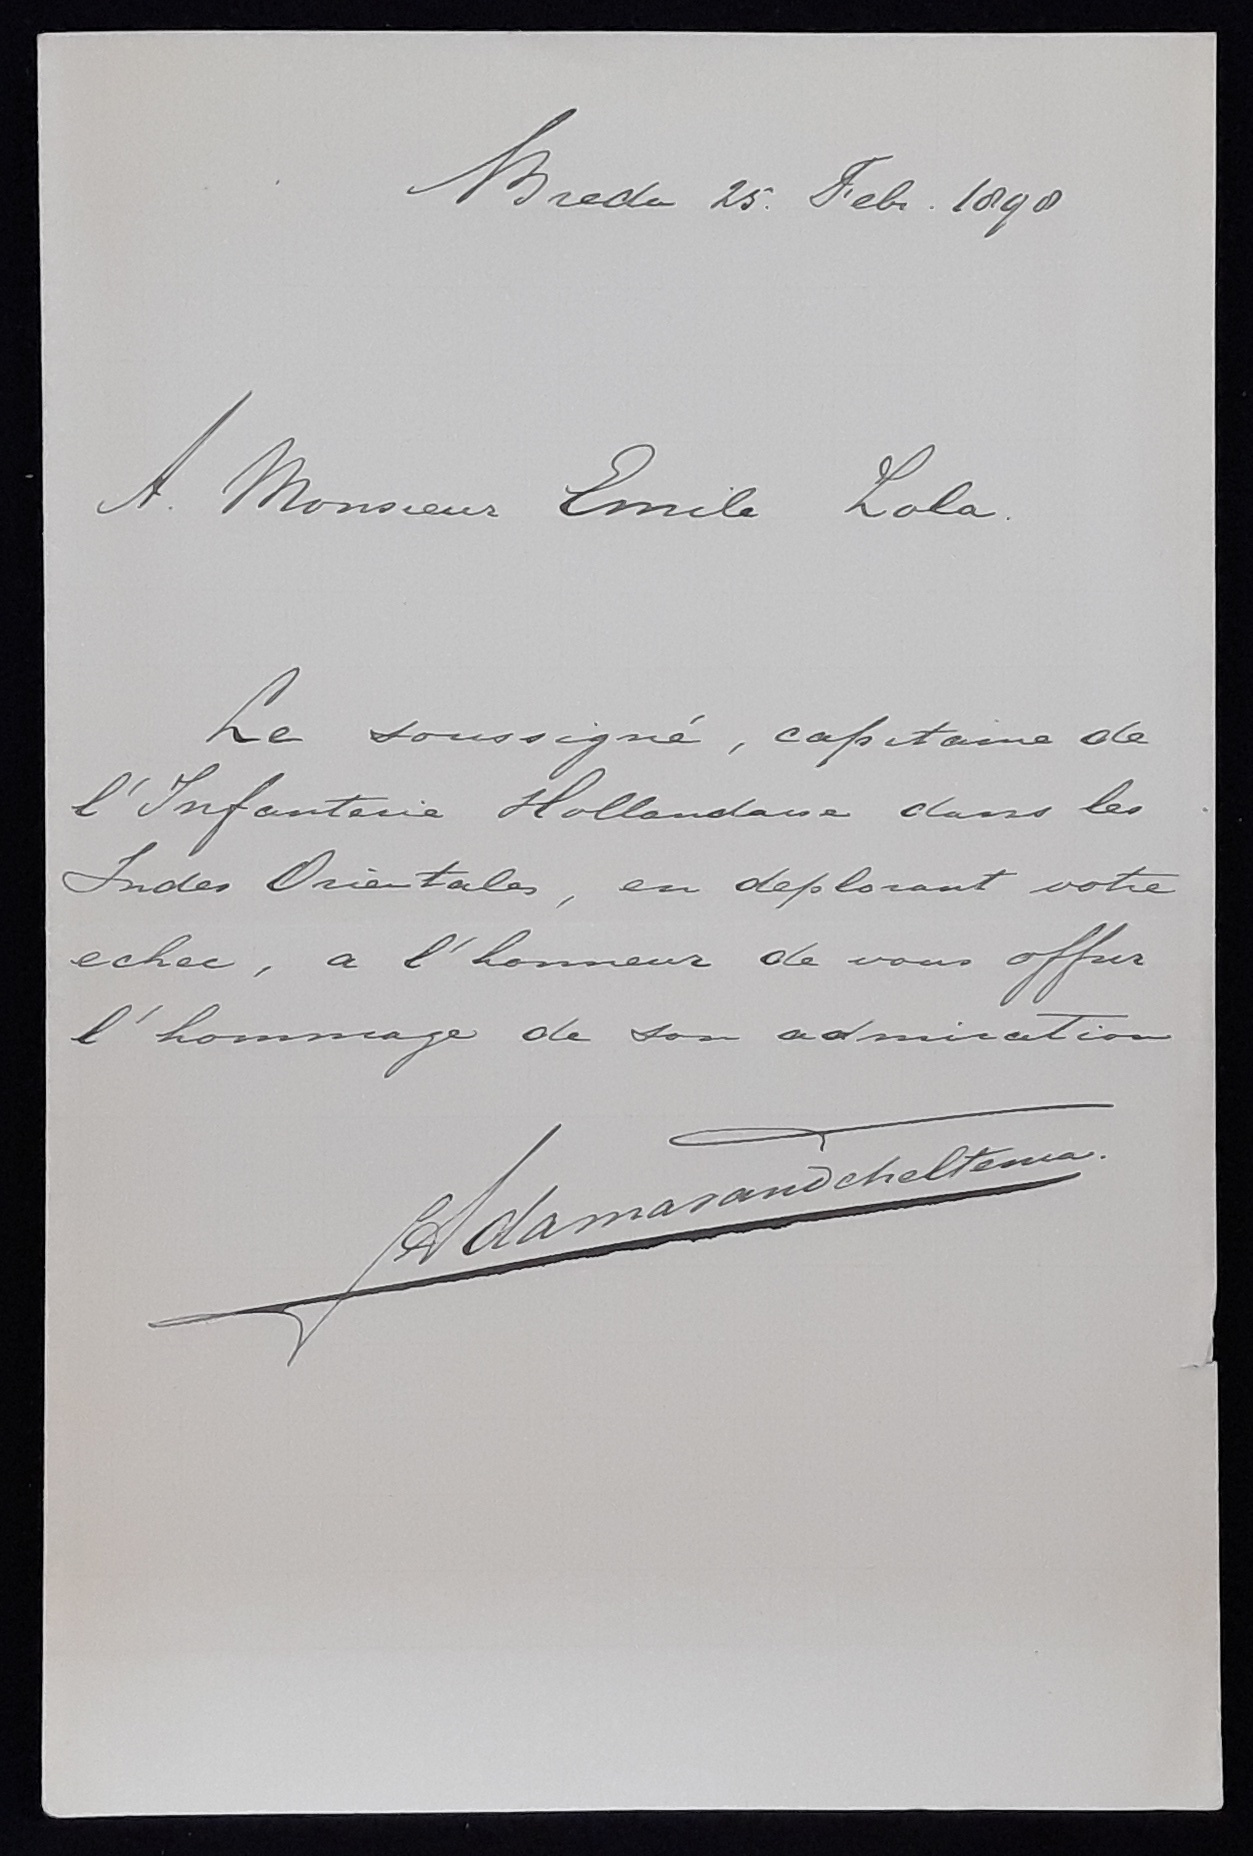 Breda 25. Febr. 1898
A. Monsieur Emile Zola.
Le soussigné, capitaine de
l'Infanterie Hollandaise dans les
Indes Orientales, en deplorant votre
echec, a l'honneur de vous offrir
l'hommage de son admiration